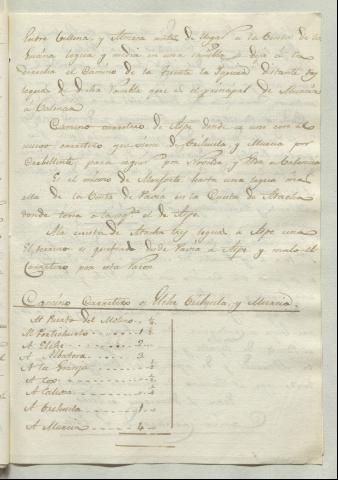 Entre Villena, y Almera antes de llegar a la Venta de la
legua y media en una rambla, se deja a la
derecha el Camino de la Fuente la Iguera distante tres
leguas de dicha rambla que es el principal de Murcia
a Valencia
Camino carretero de Aspe donde se une con el
nuevo carretero que viene de Orihuela y Murcia por
Crebillente, para seguir por Novelda y Elda a Valencia
Es el mismo de Monforte hasta una legua mas
alla de la Venta de en la Cuesta de
donde toma a la el de Aspe.
A la cuesta de tres leguas, a Aspe una
El terreno es quebrado desde a Aspe y malo el
Carretero por esta parte
Camino Carretero a Elche Orihuela y Murcia.
Al Puerto del Molino .. ½
Al Portichuelo ..... 1 ½
A Elche ..... 2
A Albatera ..... 3
A la Granja ..... ½
A Cox ..... ½
A Callosa ..... ½
A Orihuela ..... 1
A Murcia ..... 4